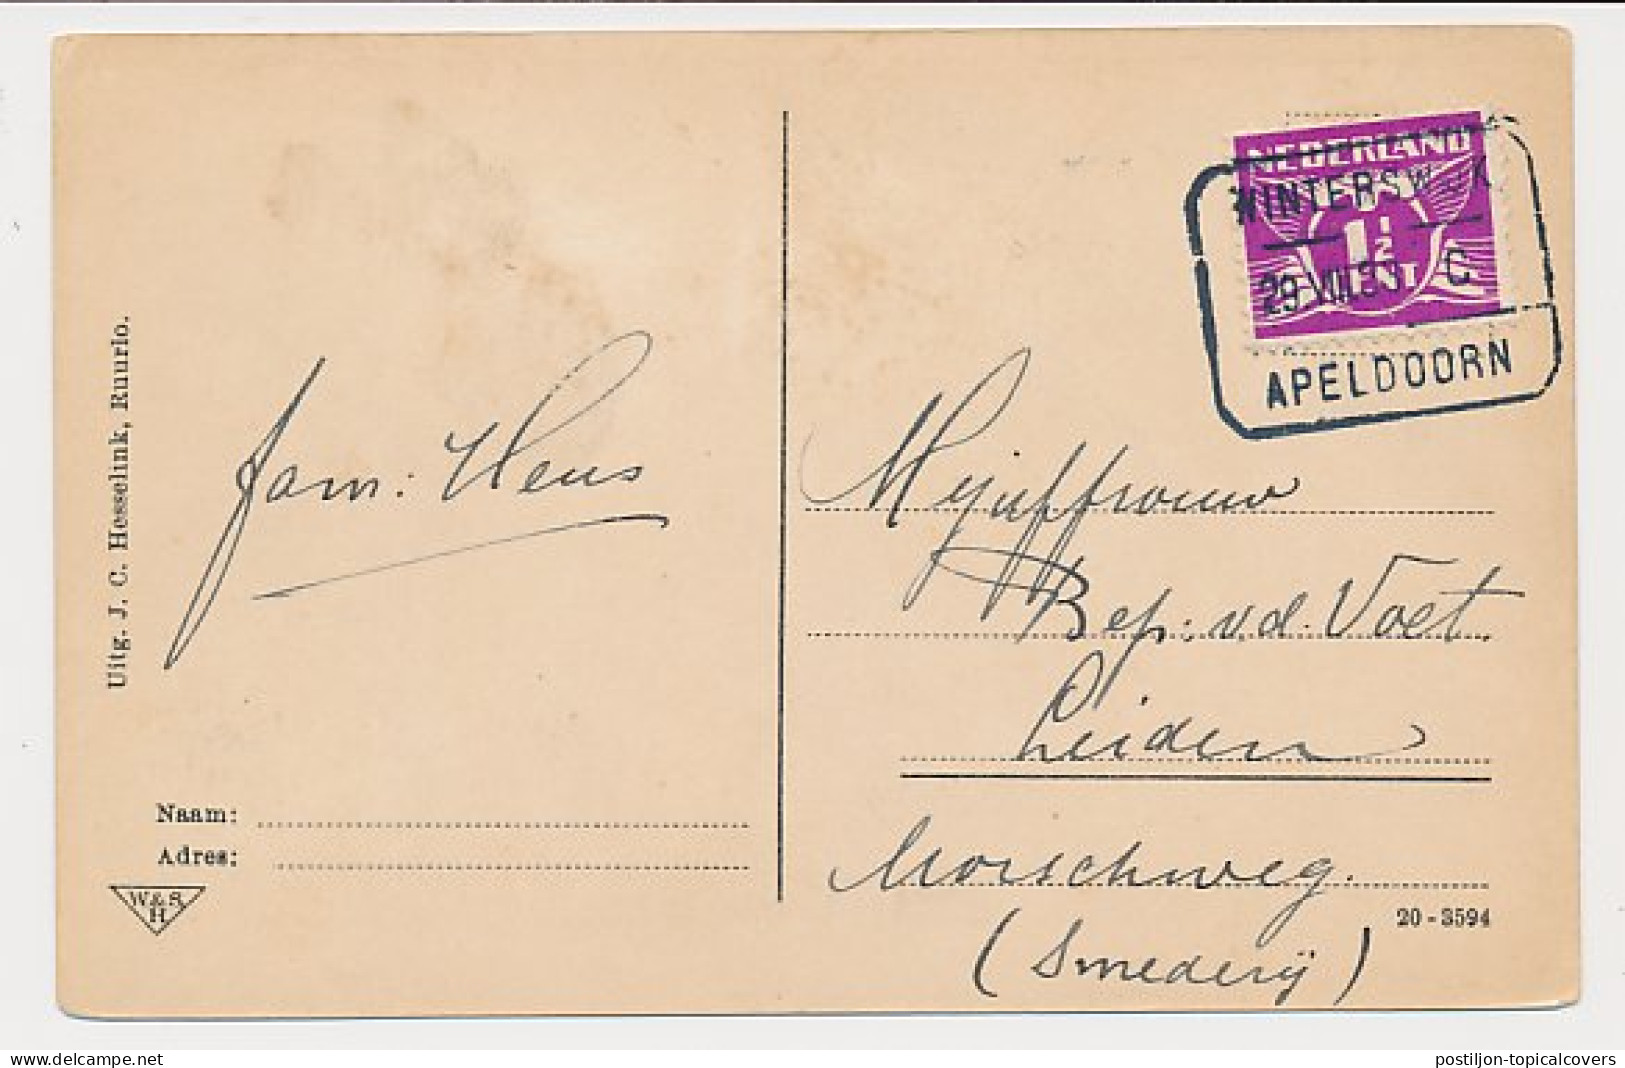 Uitg. J. C. Hesselink, Ruurlo.
fam: Heus
Naam:
Adres:
W & S
H
NEDERLAND
1½
CENT
WINTERSWIJK
29 VIII.33 C
APELDOORN
Mejuffrouw
Bep: v.d. Voet.
Leiden
Morschweg.
20 - 3594
(Smederij)
delcampe.net
postiljon-topicalcovers